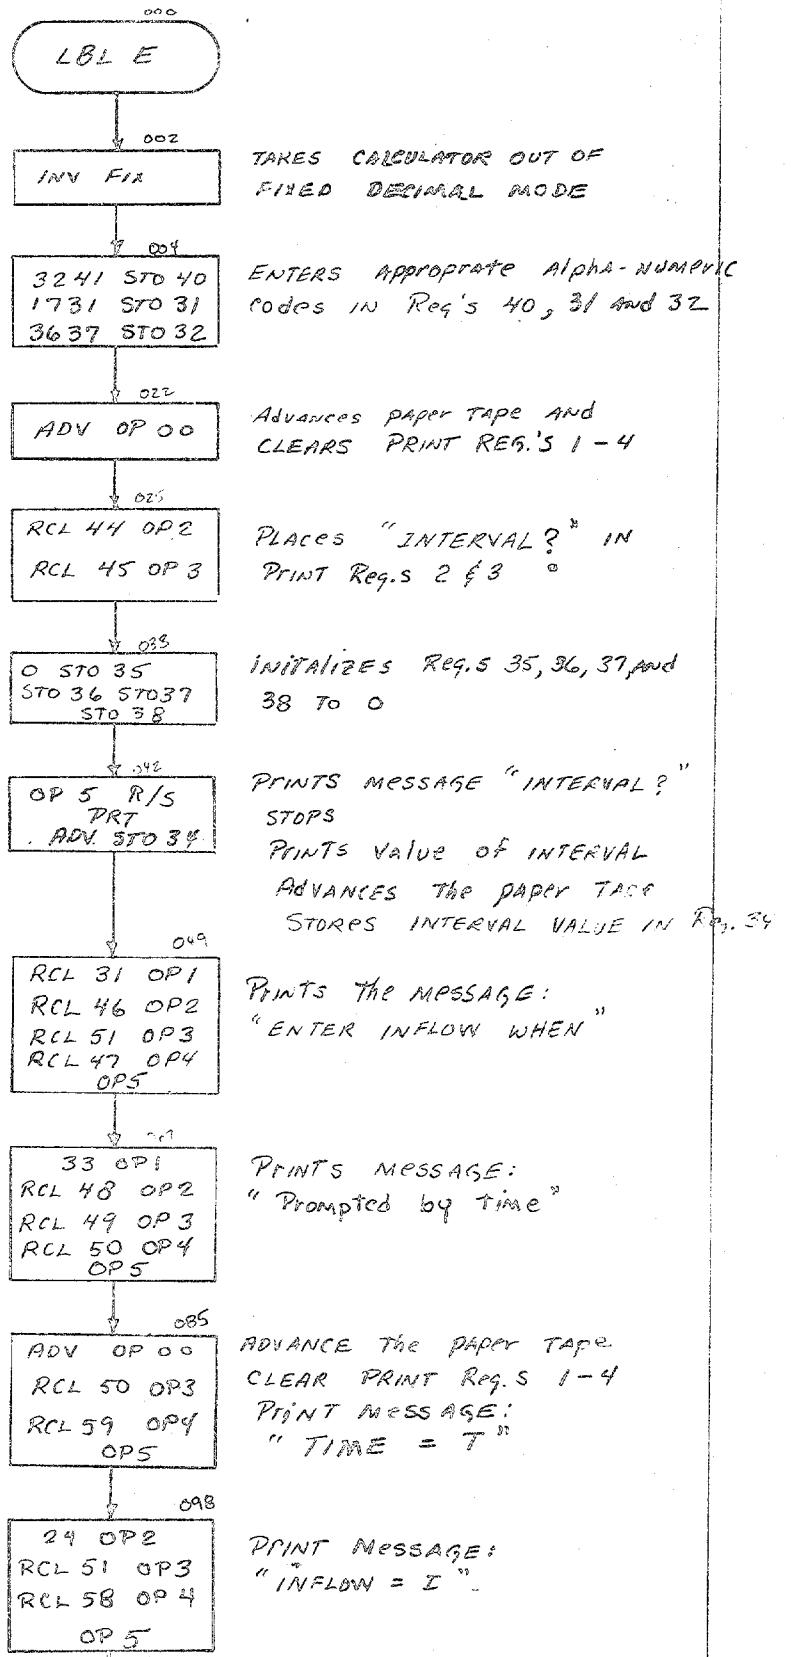 000
LBL E
002
INV FIX
TAKES CALCULATOR OUT OF
FIXED DECIMAL MODE
004
3241 STO 40
1731 STO 31
3637 STO 32
ENTERS Approprate Alpha-NUMERIC
codes IN Reg's 40, 31 And 32
022
ADV OP 00
Advances paper TAPE AND
CLEARS PRINT REG.'S 1-4
025
RCL 44 OP 2
RCL 45 OP 3
PLACes "INTERVAL?" IN
Print Reg.s 2 & 3
033
0 STO 35
STO 36 STO37
STO 38
INITALIZES Reg.s 35, 36, 37, and
38 TO 0
042
OP 5 R/S
PRT
ADV. STO 34
PRINTS MESSAGE "INTERVAL?"
STOPS
PRINTS Value of INTERVAL
AdVANCES The PAPER TAPE
STORES INTERVAL VALUE IN Reg. 34
049
RCL 31 OP1
RCL 46 OP2
RCL 51 OP3
RCL 47 OP4
OP5
Prints The MESSAGE:
"ENTER INFLOW WHEN"
33 OP1
RCL 48 OP2
RCL 49 OP3
RCL 50 OP4
OP5
PrintS MESSAGE:
"Prompted by Time"
085
ADV OP 00
RCL 50 OP3
RCL 59 OP4
OP5
ADVANCE The PAPER TAPE
CLEAR PRINT Reg.S 1-4
PrinT MESSAGE:
"TIME = T"
098
24 OP2
RCL 51 OP3
RCL 58 OP4
OP 5
PRINT MESSAGE:
"INFLOW = I".